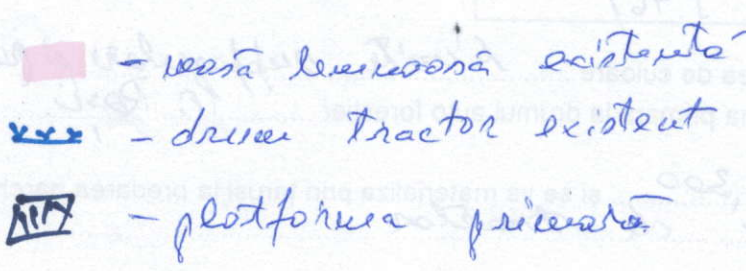 - masă lemnoasă existentă
- drum tractor existent
- platforma primară